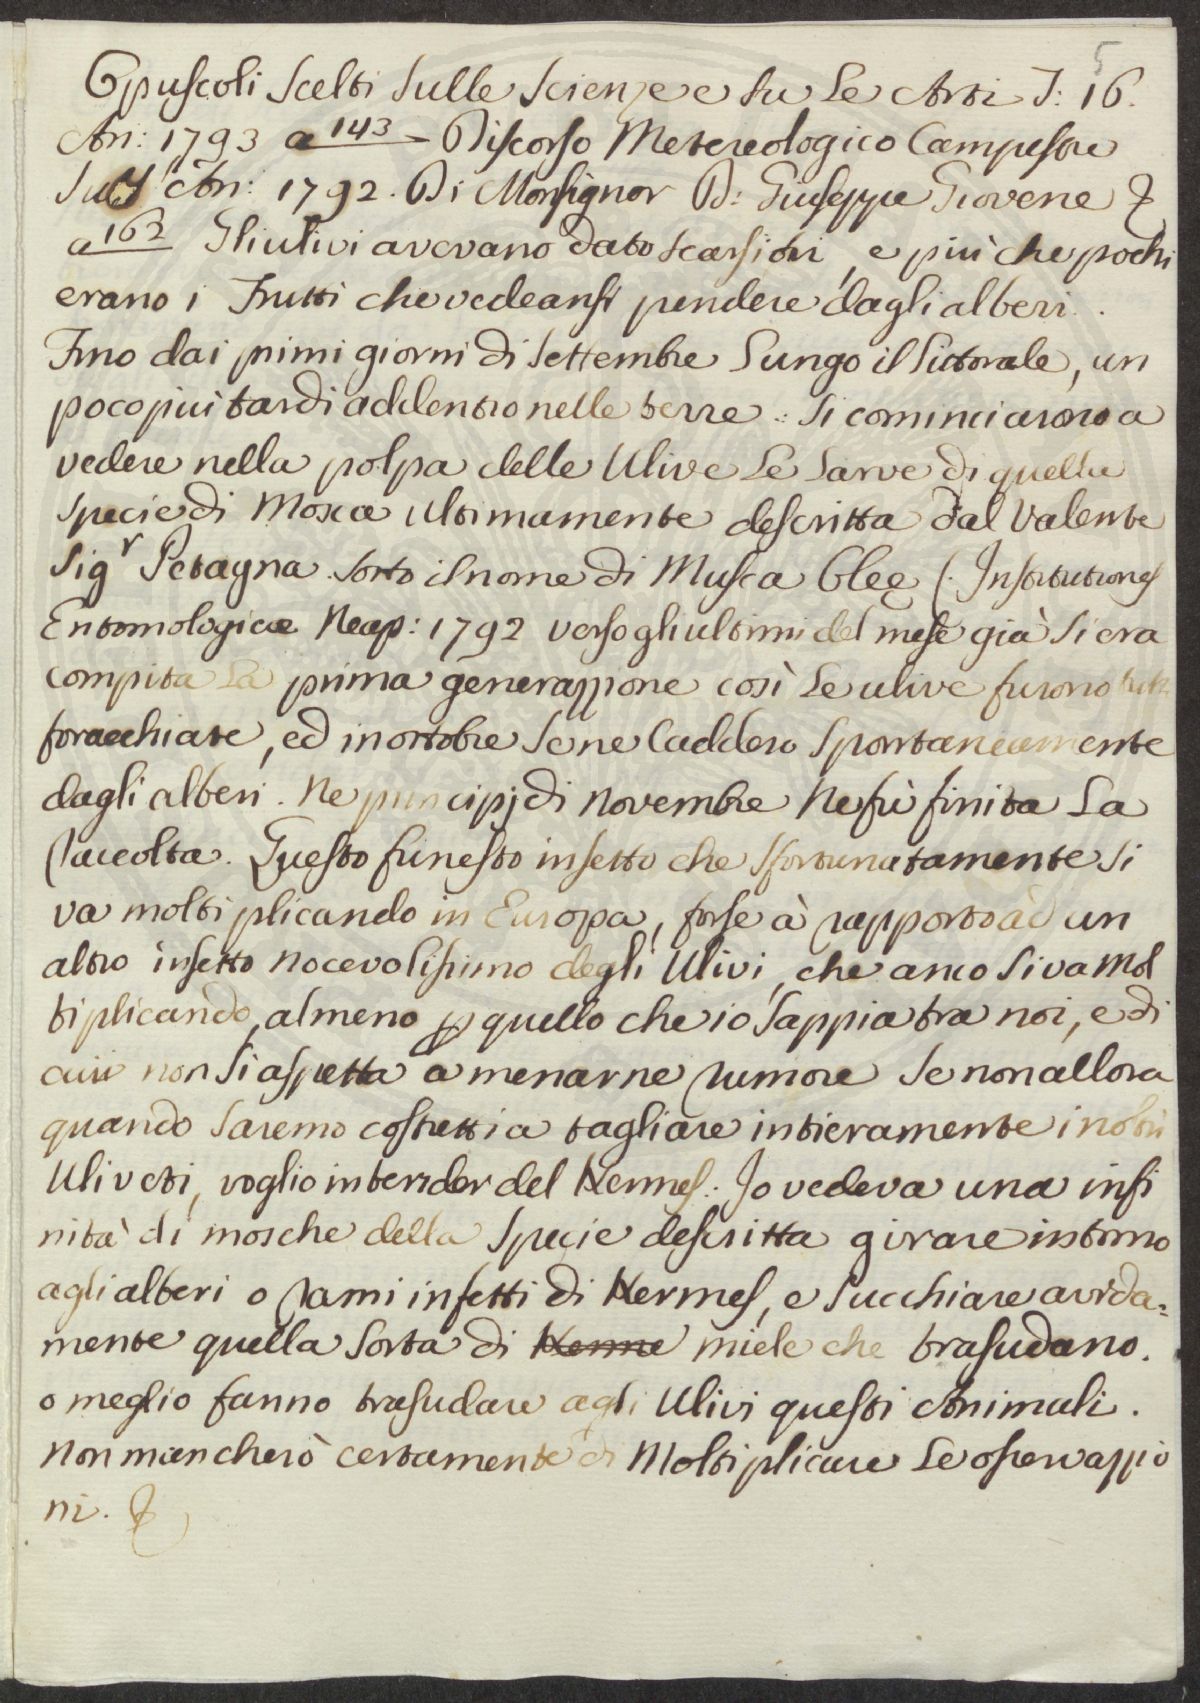 5
Opuscoli Scelti Sulle Scienze e Su Le Arti T: 16.
An: 1793 a 143 - Discorso Metereologico Campestre
Sull' An: 1792. Di Monsignor D: Giuseppe Giovene &
a 162 Gliulivi avevano dato scarsi fiori, e più che pochi
erano i Frutti che vedeansi pendere dagli alberi.
Fino dai primi giorni di Settembre Lungo il Littorale, un
poco più tardi addentro nelle terre : Si cominciarono a
vedere nella polpa delle Ulive Le Larve di quella
Specie di Mosca Ultimamente descritta dal Valente
Sigr Petagna sotto il nome di Musca Oleę (. Institutiones
Entomologicæ Neap: 1792 verso gli ultimi del mese già Si era
compita La prima generazzione così Le ulive furono tutte
foracchiate, ed in ottobre Se ne Caddero Spontaneamente
dagli alberi. Ne principj di Novembre Ne fù finita La
Raccolta. Questo funesto insetto che Sfortunatamente Si
va molti plicando in Europa, forse à rapporto àd un
altro insetto Nocevolissimo degli Ulivi, che anco Si va Mol
tiplicando, almeno per quello che io Sappia tra noi, e di
cui non Si aspetta a menarne rumore Se non allora
quando Saremo costretti a tagliare intieramente i nostri
Uliveti, voglio intender del Kermes: Io vedeva una infi
nità di mosche della Specie descritta girare intorno
agli alberi o rami infetti di Kermes, e Succhiare avida=
mente quella Sorta di Kerme miele che trasudano.
o meglio fanno trasudare agli Ulivi questi Animali.
Non mancherò certamente di Moltiplicare Le osservazzio
ni. &